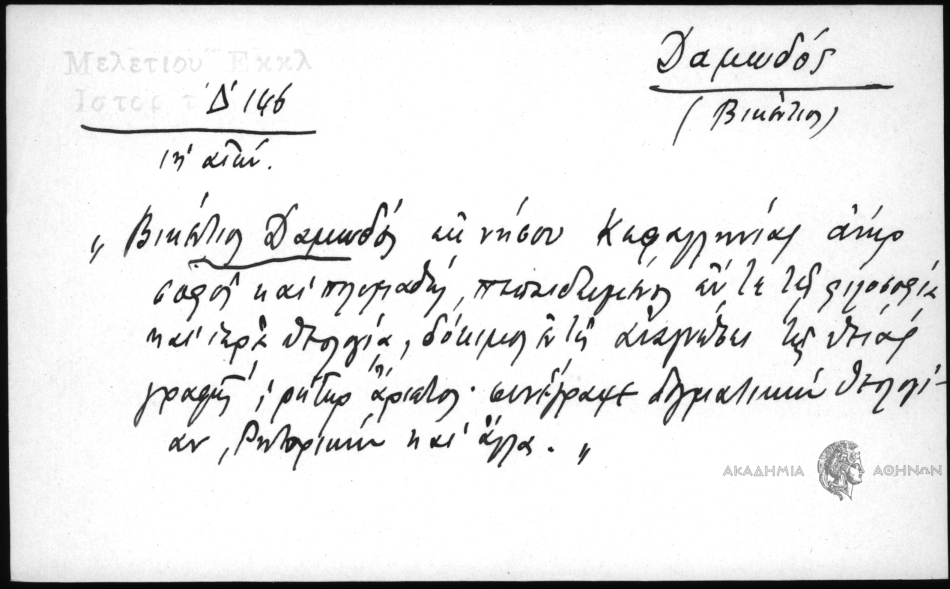 Μελετίου Εκκλ
Ιστορ τ
Δ' 146
ιη' αἰών.
Δαμωδός
(Βικέντιος)
„ Βικέντιος Δαμωδός ἐκ νήσου Κεφαλληνίας ἀνὴρ
σοφὸς καὶ πολυμαθής, πεπαιδευμένος ἔν τε τῇ φιλοσοφίᾳ
καὶ ἱερᾷ θεολογίᾳ, δόκιμος ἐν τῇ ἀναγνώσει τῆς θείας
γραφῆς, ῥήτωρ ἄριστος· συνέγραψε δογματικὴν θεολογί-
αν, Ρητορικὴν καὶ ἄλλα. „
ΑΚΑΔΗΜΙΑ ΑΘΗΝΩΝ